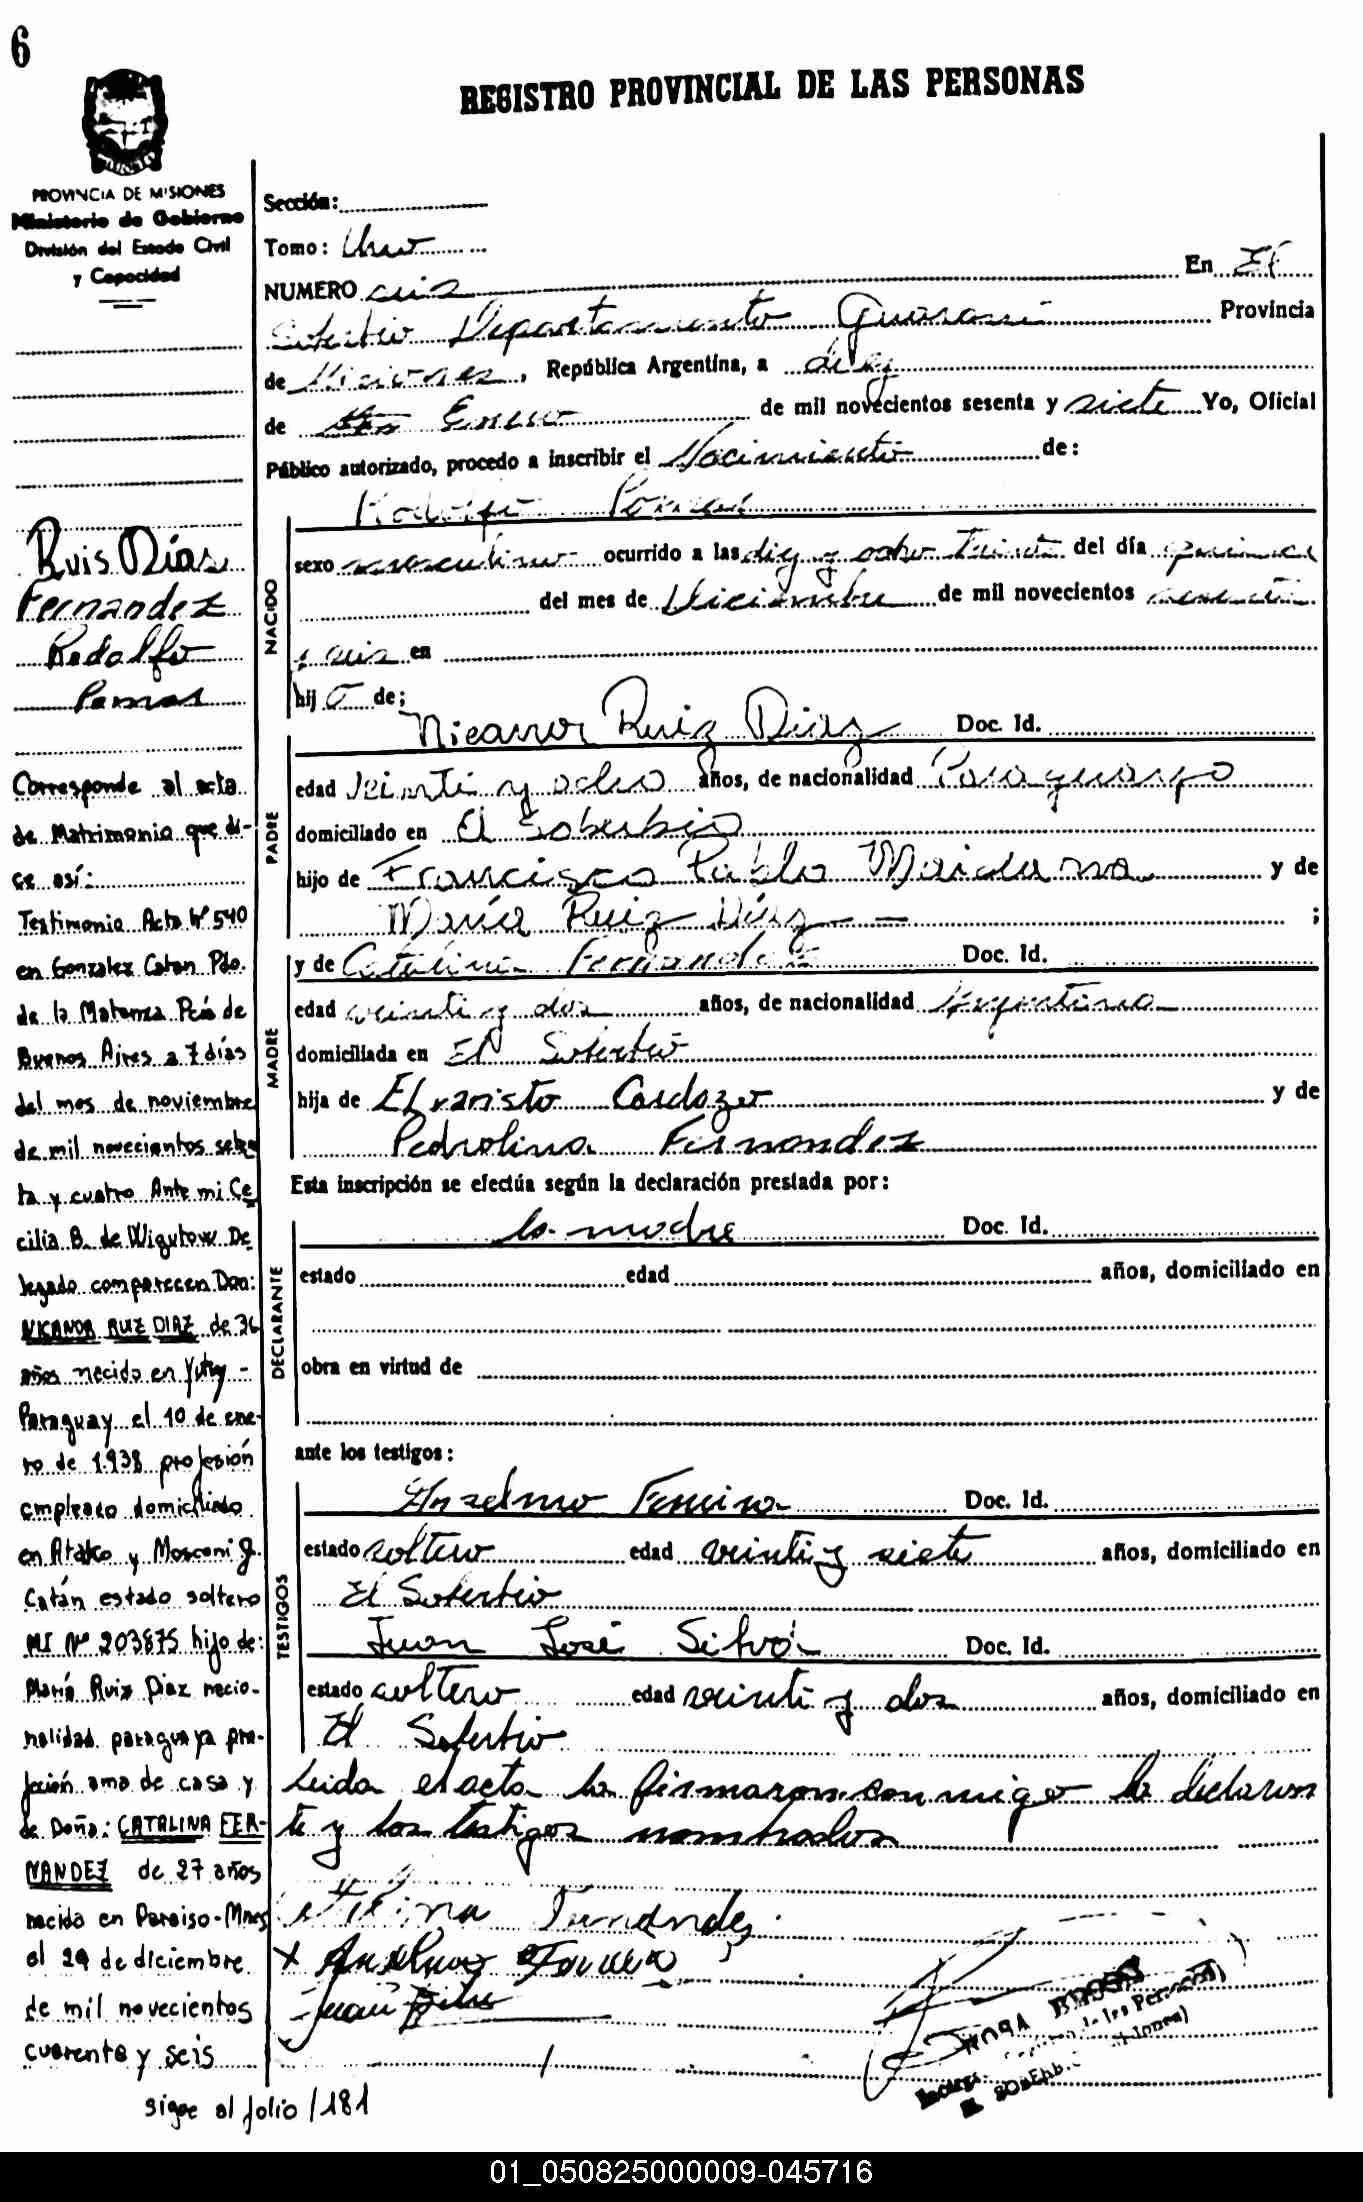 6
REGISTRO PROVINCIAL DE LAS PERSONAS
PROVINCIA DE MISIONES
Ministerio de Gobierno
División del Estado Civil
y Capacidad
Sección:
Tomo: Uno
NUMERO seis En El
Soberbio Departamento Guaraní Provincia
de Misiones, República Argentina, a diez
de Enero de mil novecientos sesenta y siete Yo, Oficial
Público autorizado, procedo a inscribir el Nacimiento de:
Rodolfo
NACIDO
sexo masculino ocurrido a las diez y ocho treinta del día
del mes de Diciembre de mil novecientos sesenta
y seis en
hij o de;
Nicanor Ruiz Diaz Doc. Id.
PADRE
edad Veinti y ocho años, de nacionalidad Paraguayo
domiciliado en El Soberbio
hijo de Francisco Pablo Maidana y de
María Ruiz Díaz — ;
y de Catalina Fernandez Doc. Id.
MADRE
edad veinti y dos años, de nacionalidad Argentina
domiciliada en El Soberbio
hija de Evaristo Cardozo y de
Pedrolina Fernandez
Esta inscripción se efectúa según la declaración prestada por:
la madre Doc. Id.
DECLARANTE
estado edad años, domiciliado en
obra en virtud de
ante los testigos:
Anselmo Ferreira Doc. Id.
TESTIGOS
estado soltero edad veinti y siete años, domiciliado en
El Soberbio
Juan José Silva Doc. Id.
estado soltero edad veinti y dos años, domiciliado en
El Soberbio
Leida el acta la firmaron conmigo la declaran
te y los testigos nombrados
Fernandez
x Anselmo
Juan Silva
Ruis Días
Fernandez
Rodolfo
Corresponde al acta
de Matrimonio que di-
ce así:
Testimonio Acta Nº 540
en Gonzalez Catan Pdo.
de la Matanza Pcia de
Buenos Aires a 7 días
del mes de noviembre
de mil novecientos seten
ta y cuatro Ante mi Ce
cilia B. de Wigutow De
legado comparecen Don:
NICANOR RUIZ DIAZ de 36
años nacido en Yuty -
Paraguay el 10 de ene-
ro de 1.938 profesión
empleado domiciliado
en y Mosconi G.
Catán estado soltero
MI Nº 203875 hijo de:
María Ruiz Diaz nacio-
nalidad paraguaya pro-
fesión ama de casa y
de Doña: CATALINA FER-
NANDEZ de 27 años
nacida en Paraiso-Mnes
el 29 de diciembre
de mil novecientos
cuarenta y seis
sigue al folio /181
01_050825000009-045716